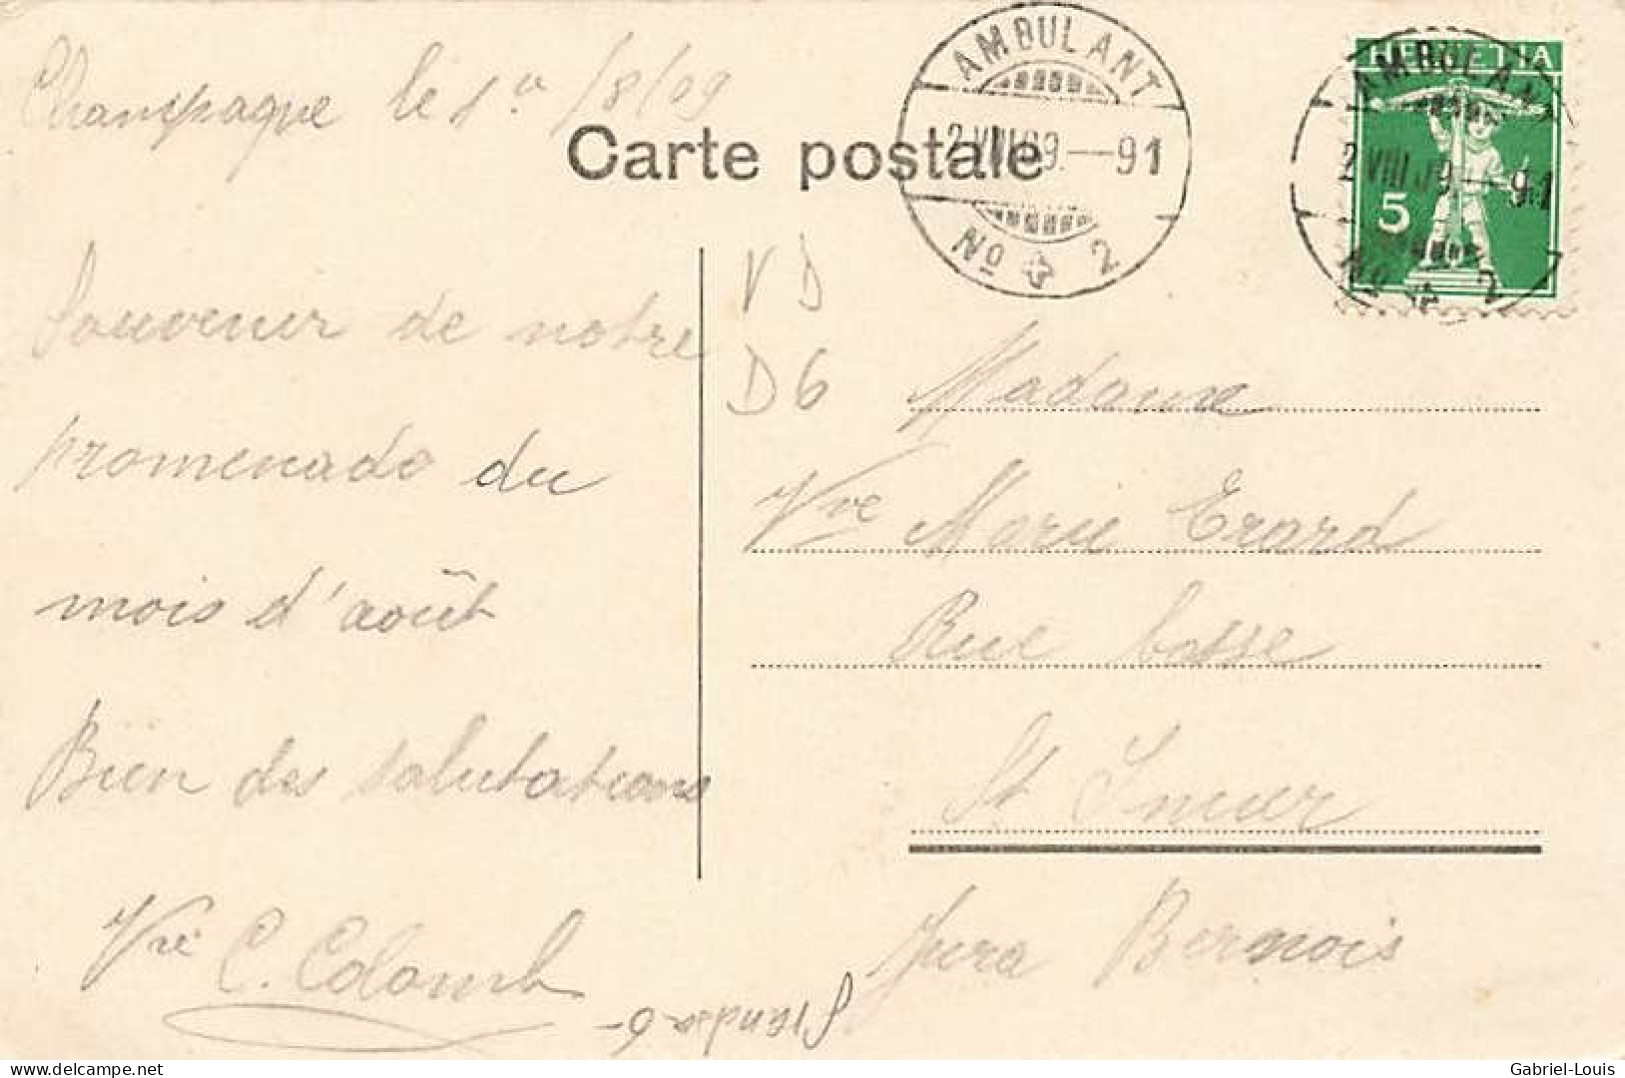 Champagne le 1er /8/09
Carte postale
AMBULANT
2 VIII 09.—91
No 2
HELVETIA
5
AMBULANT
2 VIII 09.—91
No 2
V D
D 6
Souvenir de notre
promenade du
mois d'août
Bien des salutations
Vve C. Colomb
Madame
Vve Marie Erard
Rue basse
St Imier
Jura Bernois
delcampe.net
Gabriel-Louis